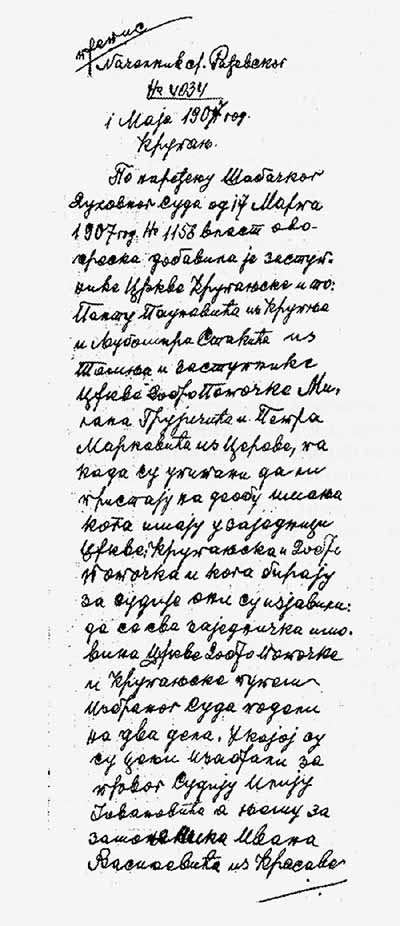 препис
Началник ср. Рађевског
№ 4034
1 Маја 1907 год.
Крупањ.
По наређену Шабачког
Духовног Суда од 14 Марта
1907 год. № 1158 власт ово-
среска добавила је заступ-
нике Цркве Крупањске и то:
Панту Пауновића из Крупња
и Љубомира Стакића из
и заступнике
Цркве Добро Поточке Ми-
лана Грујичића и Петра
Марковића из Церове, па
када су упитани да ли
пристају на деобу имања
кога имају у заједници
Цркве; Крупањска и Добро
Поточка и кога бирају
за судије они су изјавили:
да се сва заједничка имо-
вина Цркве Добро Поточке
и Крупањске путем
Избраног Суда подели
на два дела. У којој су
су цељи изабрали за
првог Судију Илију
Јовановића а њему за
заменика Ивана
Василевића из Красаве